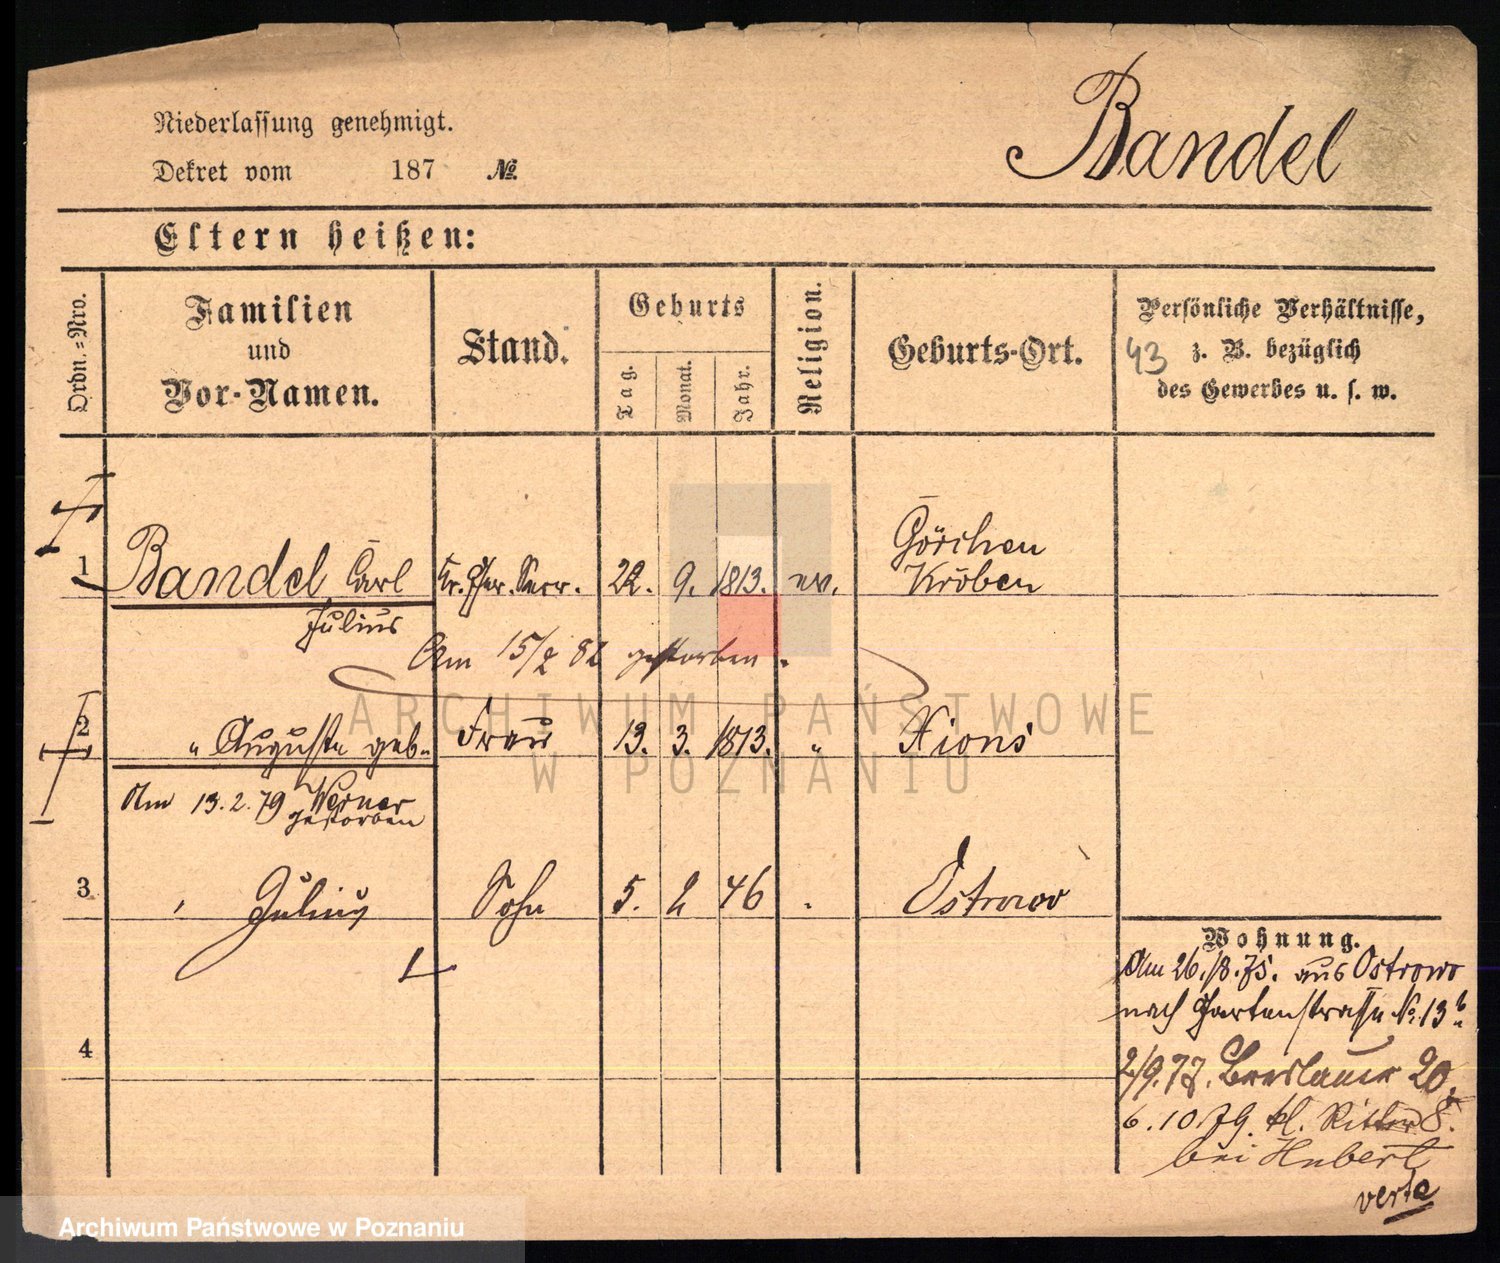 Bandel
Niederlassung genehmigt.
Dekret vom 187 №
Eltern heißen:
Ordn.=Nro.
Familien
und
Vor-Namen.
Stand.
Geburts
Tag.
Monat.
Jahr.
Religion.
Geburts-Ort.
Persönliche Verhältnisse,
z. B. bezüglich
des Gewerbes u. s. w.
43
1 Bandel Carl 22. 9. 1813. ev. Görchen
Julius Kröben
Am 15/2 82 gestorben.
2 " Auguste geb. Frau 13. 3. 1813. " Xions
Werner
Am 13.2.79 gestorben
3 Julius Sohn 5. 2 46 Ostrowo
4
Wohnung.
Am 26./8.75. aus Ostrowo
nach Gartenstrasse No. 13b.
2/9.77. Breslauer 20.
6.10.79 kl. Ritter 8.
bei Hubert
verte
ARCHIWUM PAŃSTWOWE
W POZNANIU
Archiwum Państwowe w Poznaniu